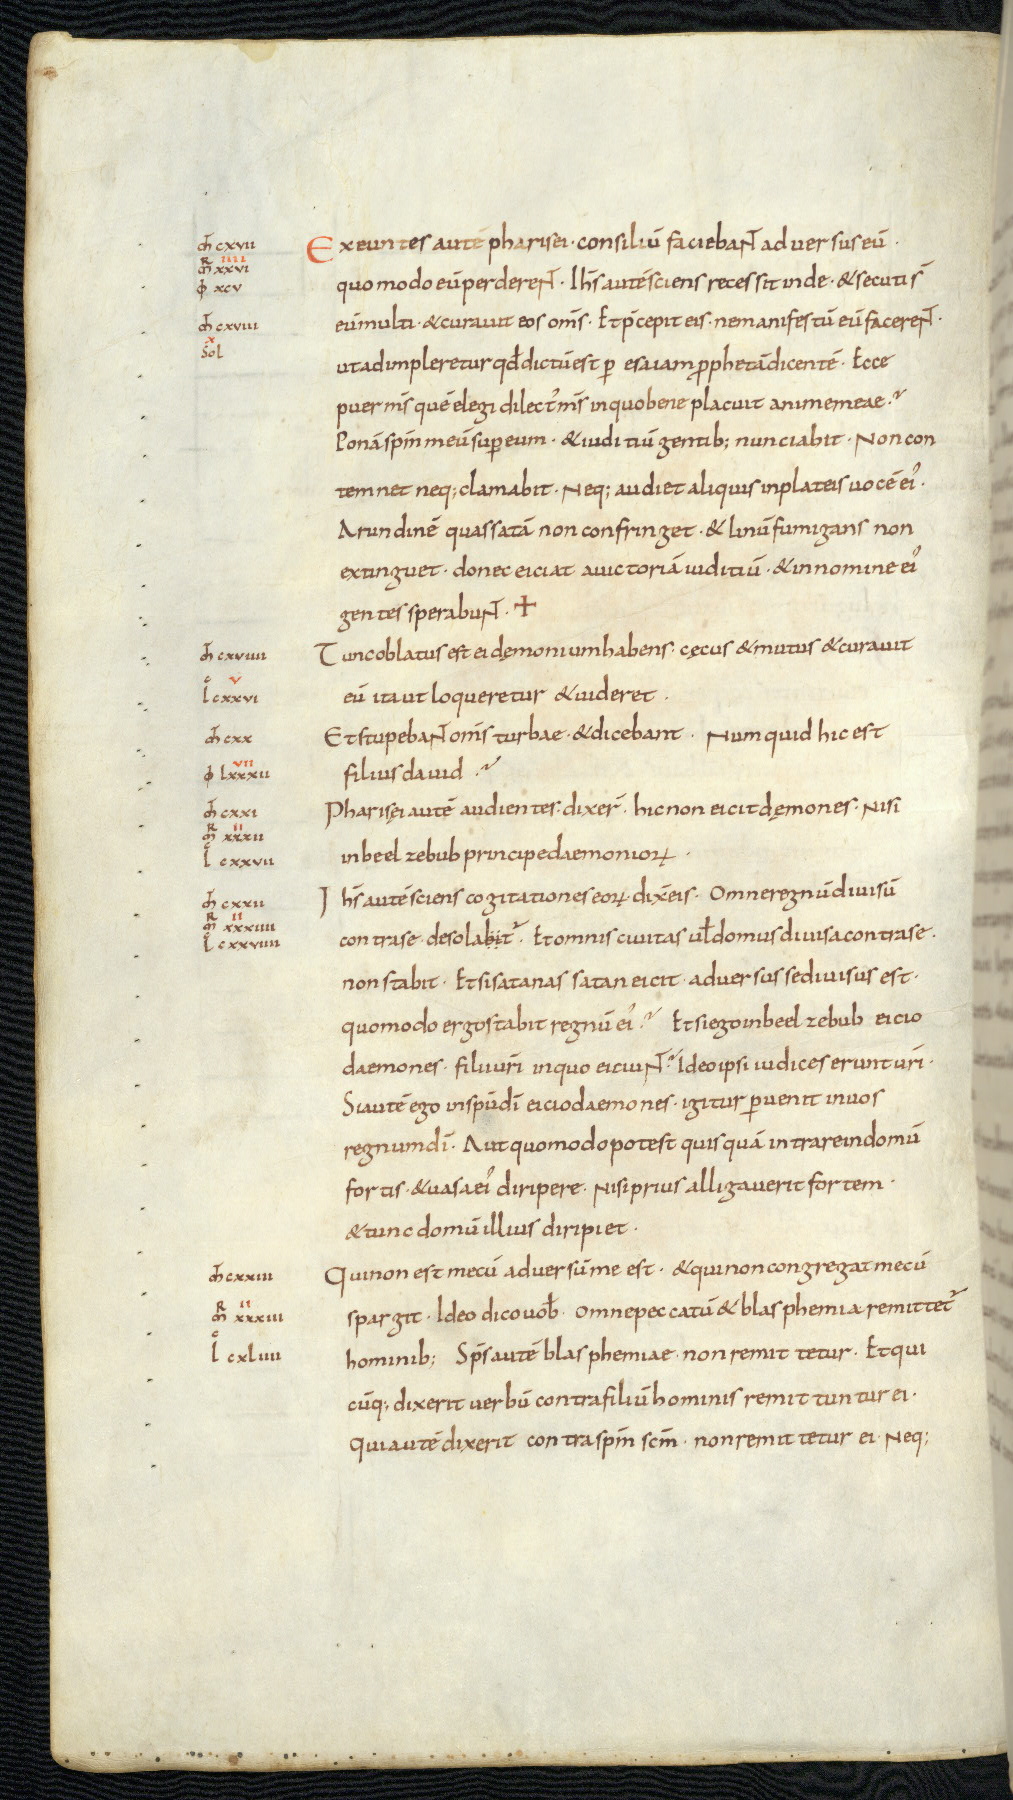 m̄t cxvii
Exeuntes autē pharisei· consiliū faciebaNT̄ aduersus eū·
m̄R xxvi iiii
ɸ xcv
quomodo eū perdereNT̄· Ih̄s autē sciens recessit inde· & secuti s̄
m̄t cxviii
eū multi· & curauit eos om̄s· Et p̄cepit eis· ne manifestū eū facereNT̄·
x
Sol
ut adimpleretur qđ dictū est ꝑ esaiam ꝓphetā dicentē· Ecce
puer m̄s quē elegi dilect᾽ m̄s in quo bene placuit anime meae·
Ponā sp̄m meū suꝑ eum· & iuditiū gentib; nunciabit· Non con
temnet neq; clamabit· Neq; audiet aliquis in plateis uocē ei᾽·
Arundinē quassatā non confringet· & linū fumigans non
extinguet· donec eiciat a uictoriā iuditiū· & in nomine ei᾽
gentes sperabuNT̄· +
m̄t cxviiii
Tunc oblatus est ei dęmonium habens· cęcus & mutus & curauit
v
l̊ cxxvi
eū ita ut loqueretur & uideret·
m̄t cxx
Et stupebaNT̄ om̄s turbae· & dicebant· Num quid hic est
vii
ɸ lxxxii
filius dauid·
m̄t cxxi
Pharisęi autē audientes· dixer̄· hic non eicit dęmones· Nisi
m̄R xxxii ii
l̊ cxxvii
in beelzebub principe daemonioꝝ·
m̄t cxxii
Ih̄s autē sciens cogitationes eoꝝ dix̄ eis· Omne regnū diuisū
m̄R xxxiiii ii
l̊ cxxviiii
contra se· desolabit᾽· Et omnis ciuitas uł domus diuisa contra se·
non stabit· Et si satanas satan eicit· aduersus se diuisus est·
quomodo ergo stabit regnū ei᾽· Et si ego in beelzebub eicio
daemones· filii ur̄i in quo eiciuNT̄· Ideo ipsi iudices erunt ur̄i·
Si autē ego in sp̄u dī eicio daemones· igitur ꝑuenit in uos
regnum dī· Aut quomodo potest quisquā intrare in domū
fortis· & uasa ei᾽ diripere· Nisi prius alligauerit fortem·
& tunc domū illius diripiet·
m̄t cxxiii
Qui non est mecū aduersū me est· & qui non congregat mecū
m̄R xxxiii ii
spargit· Ideo dico uob̄· omne peccatū & blasphemia remittet᾽
l̊ cxliiii
hominib; Sp̄s autē blasphemiae· non remittetur· Et qui
cūq; dixerit uerbū contra filiū hominis remittuntur ei·
Qui autē dixerit contra sp̄m scm̄· non remittetur ei· Neq;